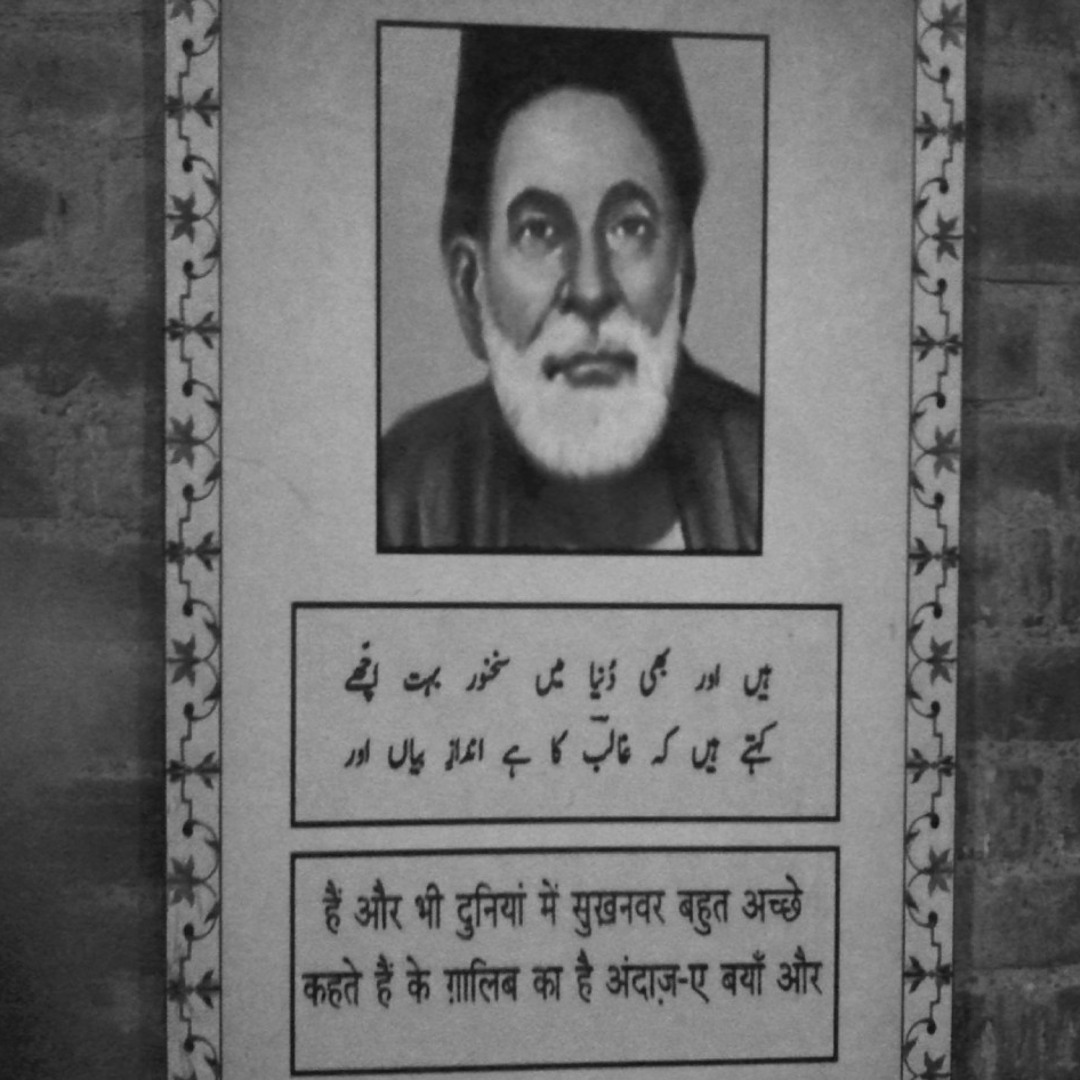 ہیں اور بھی دُنیا میں سخنور بہت اچھّے
کہتے ہیں کہ غالبؔ کا ہے اندازِ بیاں اور
हैं और भी दुनियां में सुख़नवर बहुत अच्छे
कहते हैं के ग़ालिब का है अंदाज़-ए बयाँ और